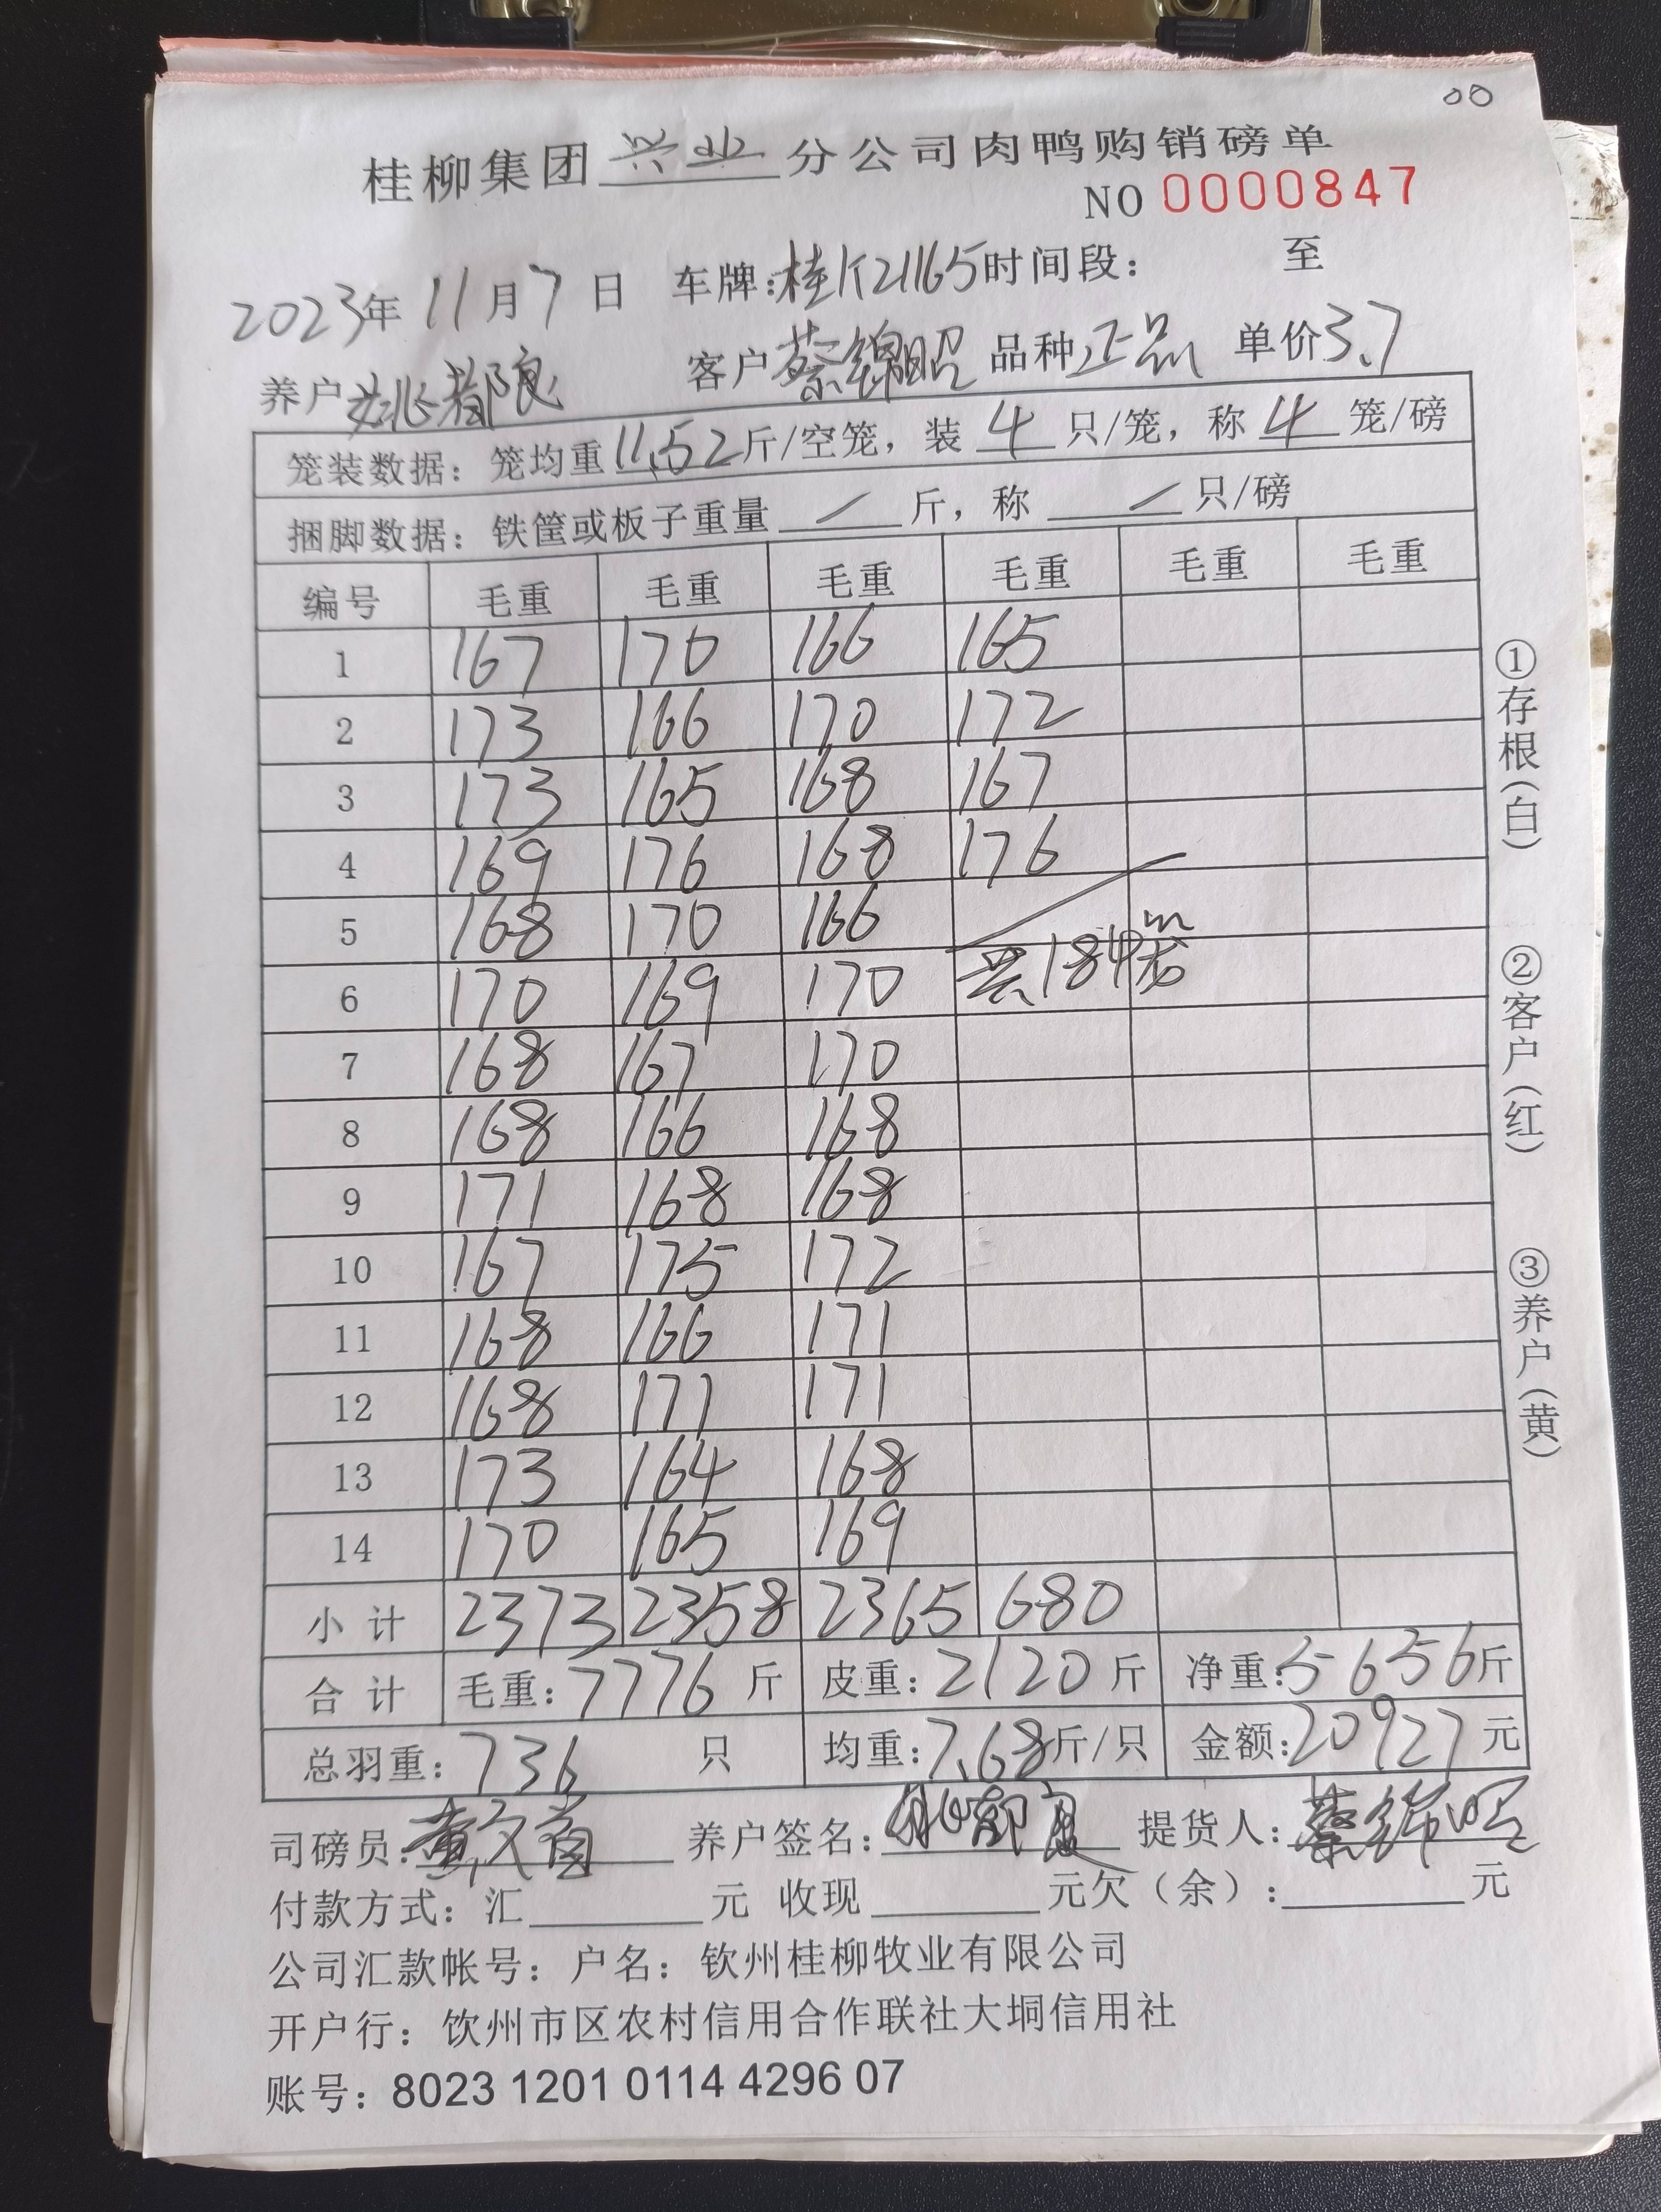 00
桂柳集团 兴业 分公司肉鸭购销磅单
NO 0000847
2023年 11月 7 日 车牌:桂K21165时间段: 至
养户 姚都良 客户 蔡锦昭 品种 正品 单价3.7
笼装数据: 笼均重11.52斤/空笼, 装 4 只/笼, 称 4 笼/磅
捆脚数据: 铁筐或板子重量 / 斤, 称 / 只/磅
编号 毛重 毛重 毛重 毛重 毛重 毛重
1 167 170 166 165
2 173 166 170 172
3 173 165 168 167
4 169 176 168 176
5 168 170 166
6 170 169 170 共184笼
7 168 167 170
8 168 166 168
9 171 168 168
10 167 175 172
11 168 166 171
12 168 171 171
13 173 164 168
14 170 165 169
小计 2373 2358 2365 680
合计 毛重: 7776 斤 皮重: 2120 斤 净重: 5656斤
总羽重: 736 只 均重: 7.68斤/只 金额: 20927 元
司磅员: 养户签名: 提货人: 蔡锦昭
付款方式: 汇 元 收现 元欠(余): 元
公司汇款帐号: 户名: 钦州桂柳牧业有限公司
开户行: 钦州市区农村信用合作联社大垌信用社
账号: 8023 1201 0114 4296 07
①存根(白)
②客户(红)
③养户(黄)